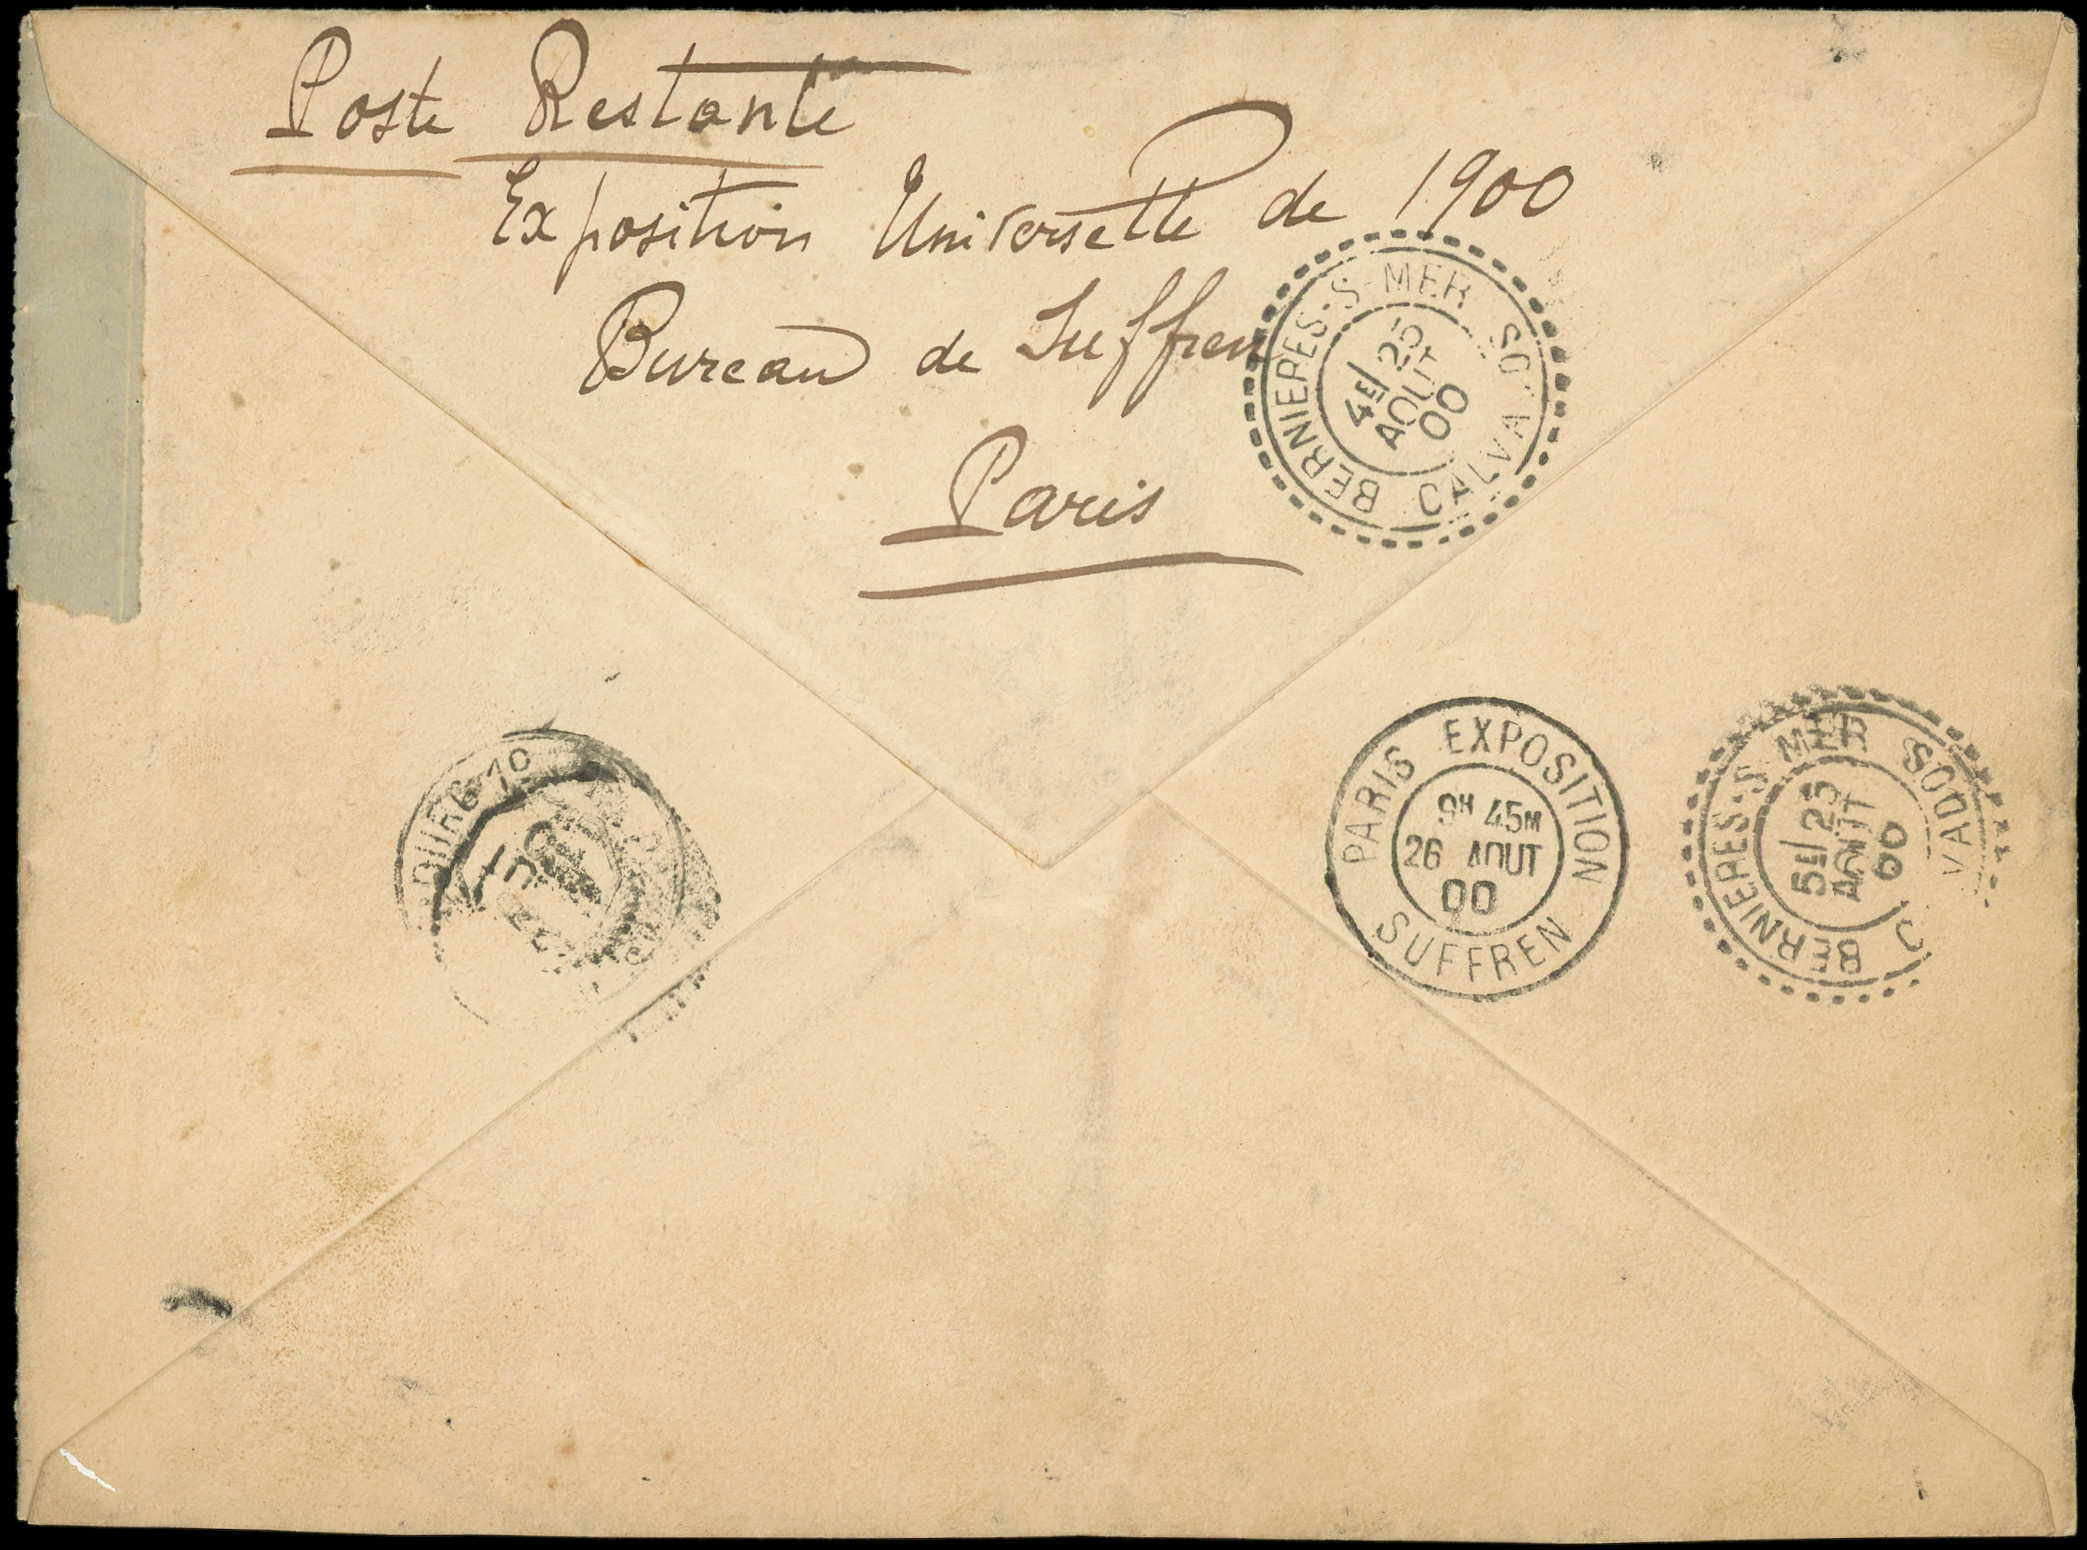 Poste Restante
Exposition Universelle de 1900
Bureau de Suffren
Paris
BERNIERES-S-MER CALVADOS
4E/ 25
AOUT
00
PARIS EXPOSITION
9H 45M
26 AOUT
00
SUFFREN
BERNIERES-S-MER C VADOS
5E/ 25
AOUT
00